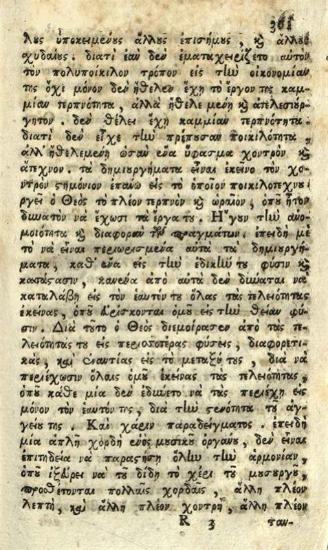 361
λȣς ὑποκειμένȣς ἄλλȣς ἐπισήμȣς, ϗ ἄλλȣς
χυδαίȣς. διατὶ ἐὰν δὲν ἐμεταχειρίζετο αὐτὸν
τὸν πολυποίκιλον τρόπον εἰς τὴν οἰκονομίαν
της ὄχι μόνον δὲν ἤθελεν ἔχῃ τὸ ἔργον της καμ-
μίαν τερπνότητα, ἀλλὰ ἤθελε μένῃ ϗ ἀτελεσιȣρ-
γητον. δὲν θέλει ἔχῃ καμμίαν τερπνότητα.
διατὶ δὲν εἶχε τὴν πρέπȣσαν ποικιλότητα,
ἀλλ' ἤθελε μένῃ ὡσὰν ἕνα ὕφασμα χοντρὸν ϗ
ἄτεχνον. τὰ δημιȣργήματα εἶναι ἐκεῖνο τὸν χο-
ντρὸν στημόνιον ἐπάνω εἰς τὸ ὁποῖον ποικιλοτεχνȣ
ργεῖ ὁ Θεὸς τὸ πλέον τερπνὸν ϗ ὡραῖον, ὁπȣ ἦτον
δυνατὸν νὰ ἔχωσι τὰ ἔργα τȣ. Ἤγȣν τὴν ἀνο-
μοιότητα ϗ διαφορὰν τῶν πραγμάτων. ἐπειδὴ μὲ
τὸ νὰ εἶναι περιωρισμένα αὐτὰ τὰ δημιȣργή-
ματα, καθ' ἕνα εἰς τὴν ἐδικήν τȣ φύσιν ϗ
κατάστασιν, κανένα ἀπὸ αὐτὰ δὲν δύναται νὰ
καταλάβῃ εἰς τὸν ἑαυτόν τȣ ὅλας τὰς τελειότητας
ἐκείνας, ὁπȣ εὑρίσκονται ὁμȣ εἰς τὴν θείαν φύ-
σιν. Διὰ τȣτο ὁ Θεὸς διεμοίρασεν ἀπὸ τὰς τε-
λειότητάς τȣ εἰς περισσοτέρας φύσεις, διαφορετι-
κὰς, καὶ ἐναντίας εἰς τὸ μεταξύ τȣς, διὰ νὰ
περιέχωσιν ὅλαις ὁμȣ ἐκείνας τὰς τελειότητας,
ὁπȣ κάθε μία δὲν ἐδύνετο νὰ τὰς περιέχῃ εἰς
μόνον τὸν ἑαυτόν της, διὰ τὴν στενότητα τȣ ἀγ-
γείȣ της. Καὶ χάριν παραδείγματος. ἐπειδὴ
μία ἁπλῆ χορδὴ ἑνὸς μȣσικȣ ὀργάνȣ, δὲν εἶναι
ἐπιτηδεία νὰ παραστήσῃ ὅλην τὴν ἁρμονίαν,
ὁπȣ ἠξεύρει νὰ τȣ δίδῃ τὸ χέρι τȣ μȣσȣργȣ,
προσθέτονται πολλαῖς χορδαῖς, ἄλλη πλέον
λεπτὴ, καὶ ἄλλη πλέον χοντρὴ, ἄλλη πλέον
R 3 ταν-